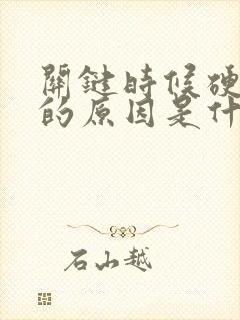 關鍵時候硬
的原因是什
石山越